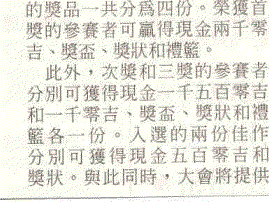 的獎品一共分爲四份。榮獲首
獎的參賽者可贏得現金兩千零
吉、獎盃、獎狀和禮籃。
此外，次獎和三獎的參賽者
分別可獲得現金一千五百零吉
和一千零吉、獎盃、獎狀和禮
籃各一份。入選的兩份佳作
分別可獲得現金五百零吉和
獎狀。與此同時，大會將提供